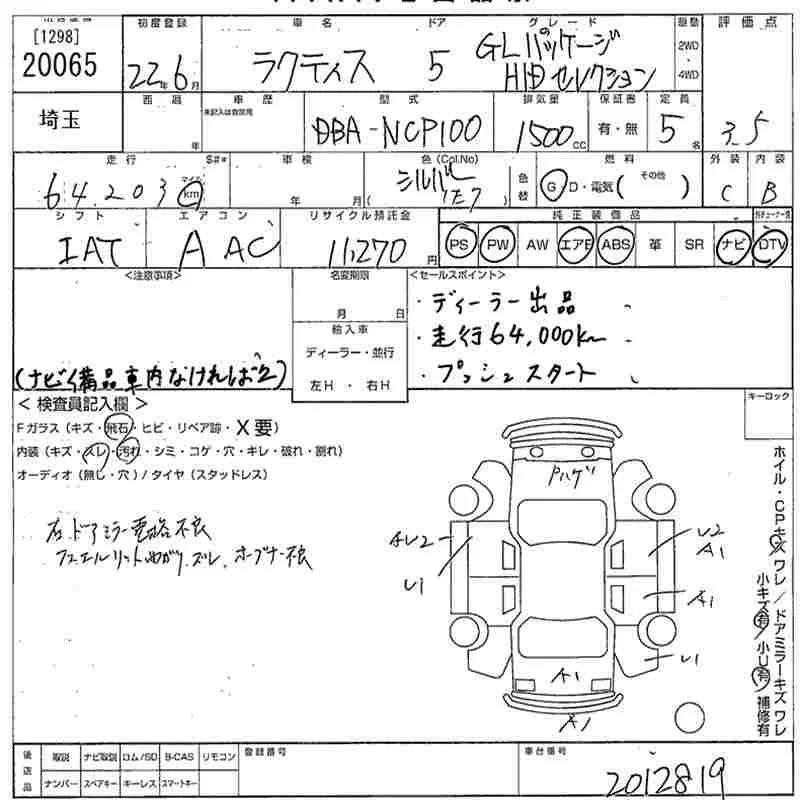 [1298]
20065
初度登録
22年6月
車名
ラクティス
ドア
5
グレード
GLパッケージ
HIDセレクション
駆動
2WD
・
4WD
評価点
3.5
埼玉
西暦
年
車歴
未記入は自家用
型式
DBA-NCP100
排気量
1500cc
保証書
有・無
定員
5名
走行
64,203
マイル
km
S#*
車検
年 月
色(Col.No)
シルバー
( 1E7 )
色替
燃料
G D・電気( その他 )
外装
C
内装
B
シフト
IAT
エアコン
AAC
リサイクル預託金
11,270円
純正装備品
PS PW AW エアB ABS 革 SR ナビ
DTV
<注意事項>
(ナビ備品車内なければ
名変期限
月 日
輸入車
ディーラー・並行
左H ・ 右H
<セールスポイント>
・ディーラー出品
・走行64,000km
・プッシュスタート
<検査員記入欄>
Fガラス(キズ・飛石・ヒビ・リペア跡・X要)
内装(キズ・スレ・汚れ・シミ・コゲ・穴・キレ・破れ・割れ)
オーディオ(無し・穴)/タイヤ(スタッドレス)
右ドアミラー電格不良
フューエルリットまがり、ズレ、オープナー不良
キーロック
Pハゲ
AU2
U1
U2
A1
A1
U1
A1
A1
ホイル・CPキズ ワレ/ドアミラーキズ ワレ
小キズ有/小U有 補修有
後送品
取説 ナビ取説 ロム/SD B-CAS リモコン
ナンバー スペアキー キーレス スマートキー
登録番号
車台番号
2012819